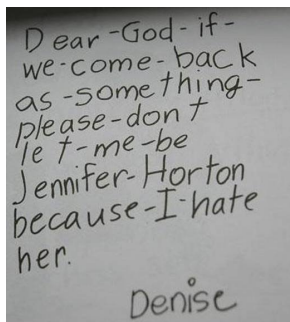 Dear-God-if-
we-come-back
as-something-
please-don't
let-me-be
Jennifer-Horton
because-I-hate
her.
Denise